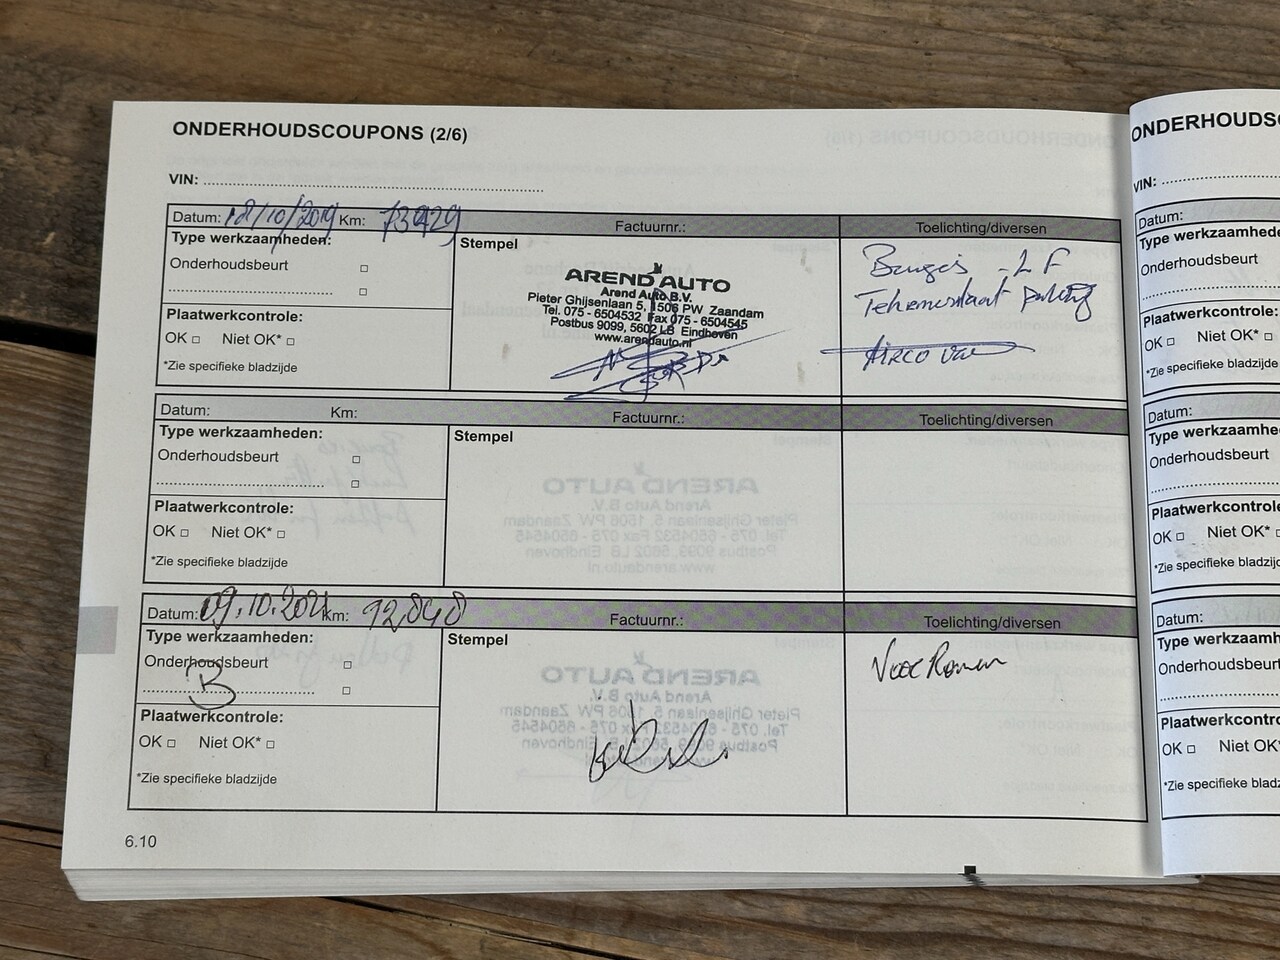 ONDERHOUDSCOUPONS (2/6)
VIN:
Datum: 18/10/2019 Km: 73929 Factuurnr.: Toelichting/diversen
Type werkzaamheden:
Onderhoudsbeurt
Plaatwerkcontrole:
OK Niet OK*
*Zie specifieke bladzijde
Stempel
AREND AUTO
Arend Auto B.V.
Pieter Ghijsenlaan 5, 1506 PW Zaandam
Tel. 075 - 6504532 Fax 075 - 6504545
Postbus 9099, 5602 LB Eindhoven
www.arendauto.nl
Airco
Datum: Km: Factuurnr.: Toelichting/diversen
Type werkzaamheden:
Onderhoudsbeurt
Plaatwerkcontrole:
OK Niet OK*
*Zie specifieke bladzijde
Stempel
Datum: 09.10.2021 Km: 92.848 Factuurnr.: Toelichting/diversen
Type werkzaamheden:
Onderhoudsbeurt
B
Plaatwerkcontrole:
OK Niet OK*
*Zie specifieke bladzijde
Stempel
6.10
ONDERHOUDSC
VIN:
Datum:
Type werkzaamhede
Onderhoudsbeurt
Plaatwerkcontrole
OK Niet OK*
*Zie specifieke bladzijde
Datum:
Type werkzaamhe
Onderhoudsbeurt
Plaatwerkcontrole
OK Niet OK*
*Zie specifieke bladzijd
Datum:
Type werkzaamh
Onderhoudsbeurt
Plaatwerkcontro
OK Niet OK*
*Zie specifieke bladz